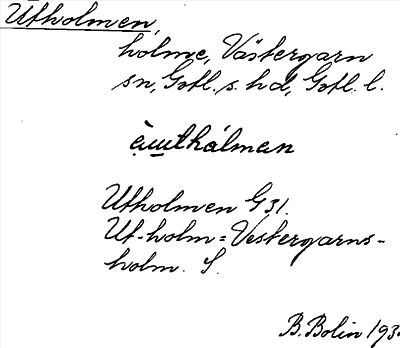 Utholmen,
holme, Västergarn
sn, Gotl. s. hd, Gotl. l.
à̤u̲thålmɑn
Utholmen G 31.
Ut-holm = Vestergarns-
holm. S.
B. Bolin 193